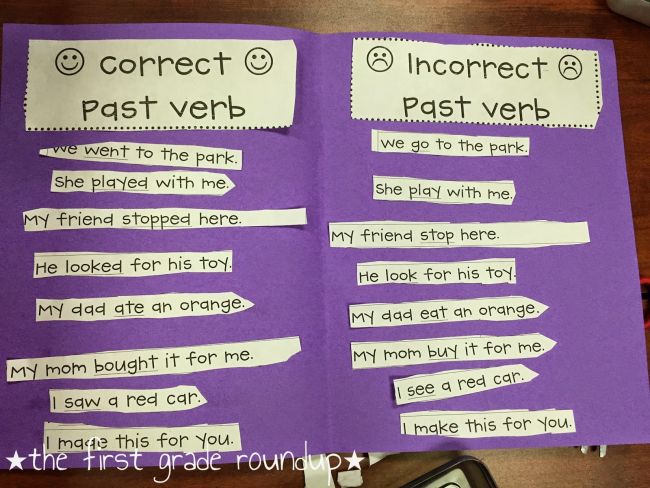 Correct
Past verb
We went to the park.
She played with me.
My friend stopped here.
He looked for his toy.
My dad ate an orange.
My mom bought it for me.
I saw a red car.
I made this for you.
Incorrect
Past verb
We go to the park.
She play with me.
My friend stop here.
He look for his toy.
My dad eat an orange.
My mom buy it for me.
I see a red car.
I make this for you.
★the first grade roundup★